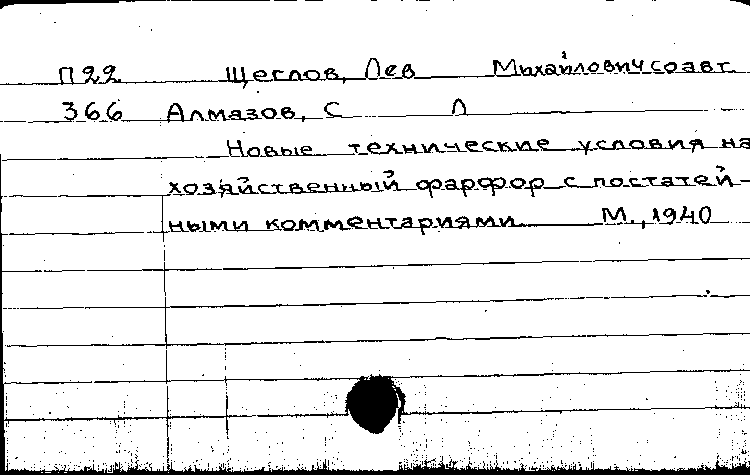 П22 Щеглов, Лев Михайлович соавт.
366 Алмазов, С Л
Новые технические условия на
хозяйственный фарфор с постатей-
ными комментариями М., 1940